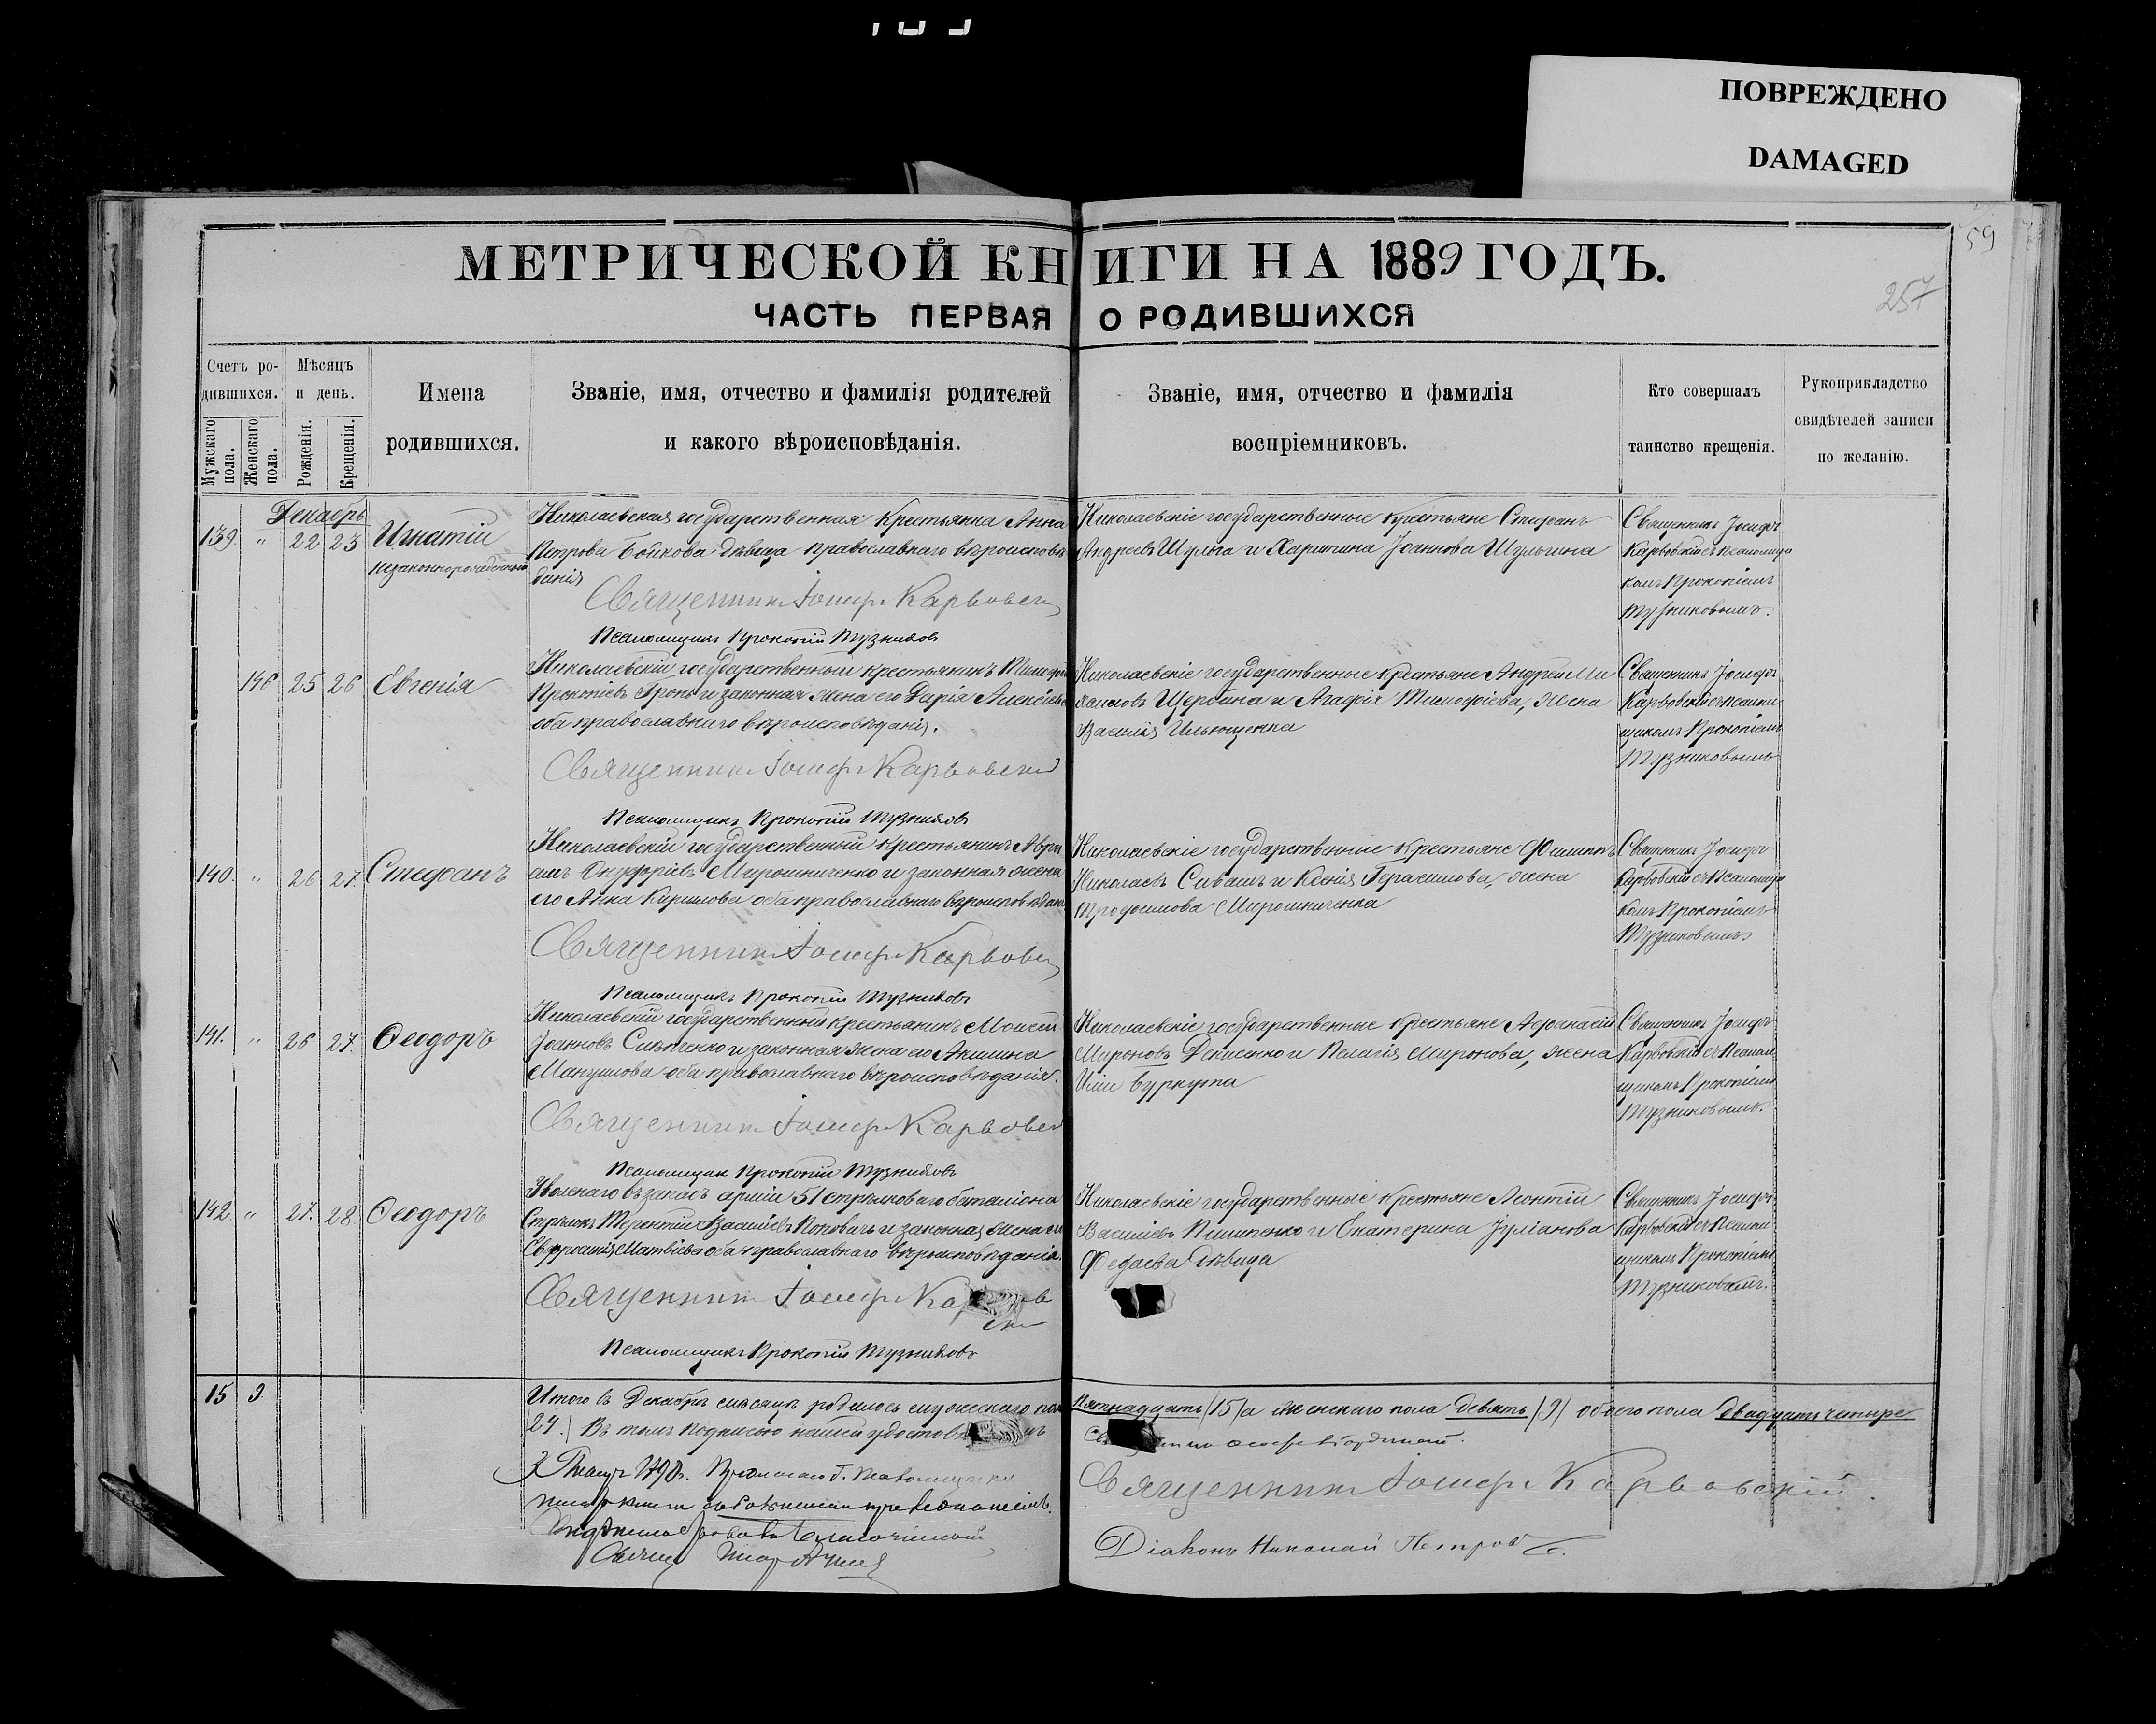 ПОВРЕЖДЕНО
DAMAGED
59
257
МЕТРИЧЕСКОЙ КНИГИ НА 1889 ГОДЪ.
ЧАСТЬ ПЕРВАЯ О РОДИВШИХСЯ
Счетъ ро-
дившихся.
Мужскаго пола.
Женскаго пола.
Мѣсяцъ
и день.
Рожденія.
Крещенія.
Имена
родившихся.
Званіе, имя, отчество и фамилія родителей
и какого вѣроисповѣданія.
Званіе, имя, отчество и фамилія
воспріемниковъ.
Кто совершалъ
таинство крещенія.
Рукоприкладство
свидѣтелей записи
по желанію.
Декабрь
139. " 22 23 Игнатій
незаконнорожденный
Николаевская государственная крестьянка Анна
Петрова Бойкова дѣвица православнаго вѣроисповѣ
данія
Священникъ Іосифъ Карвовск
Псаломщикъ Прокопій Тузниковъ
Николаевскіе государственные крестьяне Стефанъ
Андреевъ Шульга и Харитина Іоаннова Шульгина
Священникъ Іосифъ
Карвовскій съ псаломщи
комъ Прокопіемъ
Тузниковымъ.
146 25 26 Евгенія
Николаевскій государственный крестьянинъ Тимофей
Прокопіевъ Гронь и законная жена его Дарія Алексѣева
оба православнаго вѣроисповѣданія.
Священникъ Іосифъ Карвовскій
Псаломщикъ Прокопій Тузниковъ
Николаевскіе государственные крестьяне Андрей Ми
хаиловъ Щербина и Агафія Тимофіева, жена
Василія Ильющенка
Священникъ Іосифъ
Карвовскій съ псалом
щикомъ Прокопіемъ
Тузниковымъ
140. " 26 27. Стефанъ
Николаевскій государственный крестьянинъ Авра
амъ Онуфріевъ Мирошниченко и законная жена
его Анна Кирилова оба православнаго вѣроисповѣдан
Священникъ Іосифъ Карвовск
Псаломщикъ Прокопій Тузниковъ
Николаевскіе государственные крестьяне Филиппъ
Николаевъ Сивашъ и Ксенія Герасимова, жена
Трофимова Мирошниченка
Священникъ Іосифъ
Карвовскій съ псаломщи
комъ Прокопіемъ
Тузниковымъ
141. " 26 27. Ѳеодоръ
Николаевскій государственный крестьянинъ Моисей
Іоанновъ и законная жена его Акилина
оба православнаго вѣроисповѣданія.
Священникъ Іосифъ Карвовск
Псаломщикъ Прокопій Тузниковъ
Николаевскіе государственные крестьяне Афанасій
Мироновъ Денисенко и Пелагія Миронова, жена
Иліи Буркута
Священникъ Іосифъ
Карвовскій съ псалом
щикомъ Прокопіемъ
Тузниковымъ.
142. " 27. 28 Ѳеодоръ
Уволенаго въ запасъ арміи 51 стрѣлковаго баталіона
Стрѣлокъ Терентій Василіевъ Поповичъ и законная жена его
Евфросинія Матвіева оба православнаго вѣроисповѣданія.
Священникъ Іосифъ
Псаломщикъ Прокопій Тузниковъ
Николаевскіе государственные крестьяне Леонтій
Василіевъ Пилипенко и Екатерина Іуліанова
Федаева дѣвица
Священникъ Іосифъ
Карвовскій съ псалом
щикомъ Прокопіемъ
Тузниковымъ.
15 9.
Итого въ Декабрѣ мѣсяцѣ родилось мужскаго пол
Пятнадцать /15/ а женскаго пола девять /9/ обоего пола двадцать четыре
24./ Въ томъ подписью нашей
Священникъ Іосифъ Карвовскій.
Діаконъ Николай Петровъ